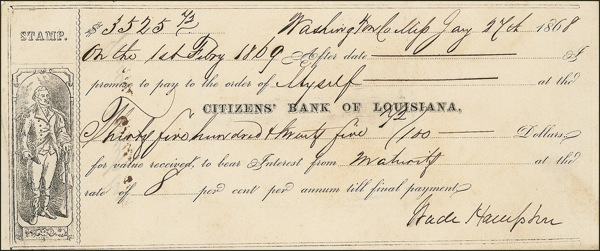 STAMP.
$3525 72/ Washington Co Miss Jany 27th 1868
On the 1st Febry 1869 After date I
promise to pay to the order of Myself at the
CITIZENS' BANK OF LOUISIANA,
Thirty five hundred & twenty five 72/100 Dollars,
for value received, to bear Interest from maturity at the
rate of 8 per cent per annum till final payment
Wade Hampton